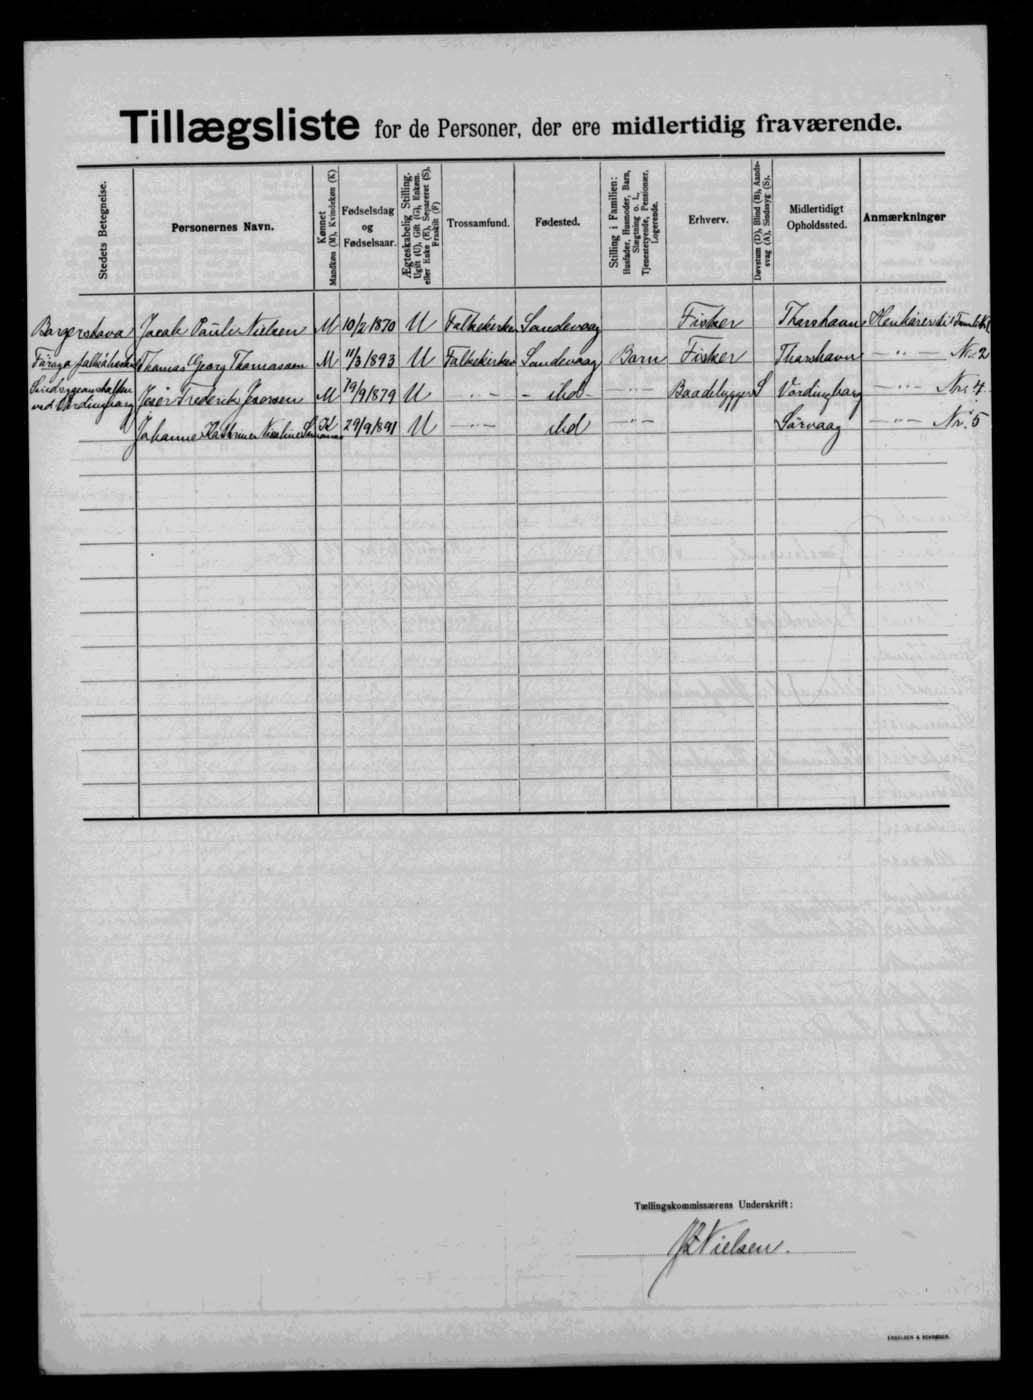 Tillægsliste for de Personer, der ere midlertidig fraværende.
Stedets Betegnelse.
Personernes Navn.
Kønnet
Mandkøn (M), Kvindekøn (K)
Fødselsdag
og
Fødselsaar.
Ægteskabelig Stilling.
Ugift (U), Gift (G), Enkem.
eller Enke (E), Separeret (S),
Fraskilt (F)
Trossamfund.
Fødested.
Stilling i Familien:
Husfader, Husmoder, Barn,
Slægtning o. l.,
Tjenestetyende, Pensionær,
Logerende.
Erhverv.
Døvstum (D), Blind (B), Aands-
svag (A), Sindssyg (S).
Midlertidigt
Opholdssted.
Anmærkninger
Jacob Pauli Nielsen M 10/2 1870 U Folkekirken Sandevaag Fisker Thorshavn
Thomas Georg Thomassen M 11/3 1893 U Folkekirken Sandevaag Barn Fisker Thorshavn — " — Nr. 2
ved Vordingborg Frederik M 19/9 1879 U — " — ibd — " — Baadebygger S Vordingborg — " — Nr. 4
Johanne K 29/9 1891 U — " — ibd — " — Sørvaag — " — Nr. 5
Tællingskommissærens Underskrift:
Nielsen.